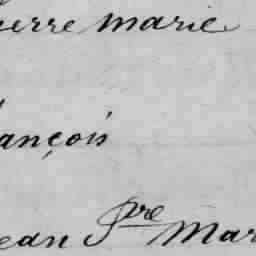 ierre marie
ançois
ean Pre Mar